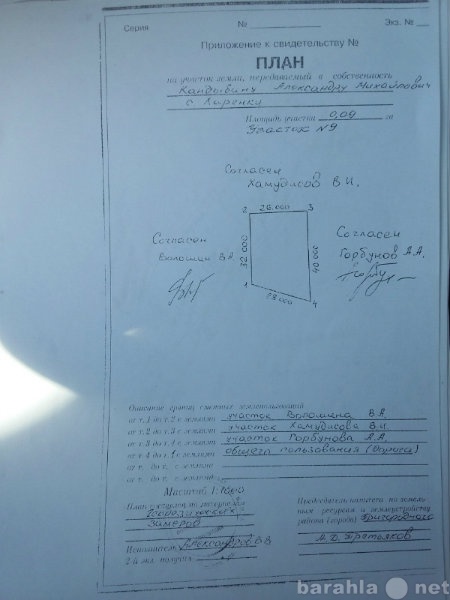 Серия № Экз. №
Приложение к свидетельству №
ПЛАН
на участок земли, передаваемый в собственность
Кандыбину Александру Михайлович
с.
Площадь участка 0,09 га
Участок №9
Согласен
Хамудисов В.И.
2 26.000 3
Согласен
Волошин В.А.
32.000
40.000
Согласен
Горбунов А.А.
1
28.000
4
Описание границ смежных землепользований
от т. 1 до т. 2 с землями участок Волошина В.А.
от т. 2 до т. 3 с землями участок Хамудисова В.И.
от т. 3 до т. 4 с землями участок Горбунова А.А.
от т. 4 до т. 1 с землями общего пользования (дорога)
от т. до т. с землями
от т. до т. с землями
Масштаб 1:1000
План составлен по материалам
замеров
Исполнитель Александров В.В.
2-й экз. получил
Председатель комитета по земельным ресурсам и землеустройству
района (города) Пригородного
А.Д. Третьяков
barahla.net